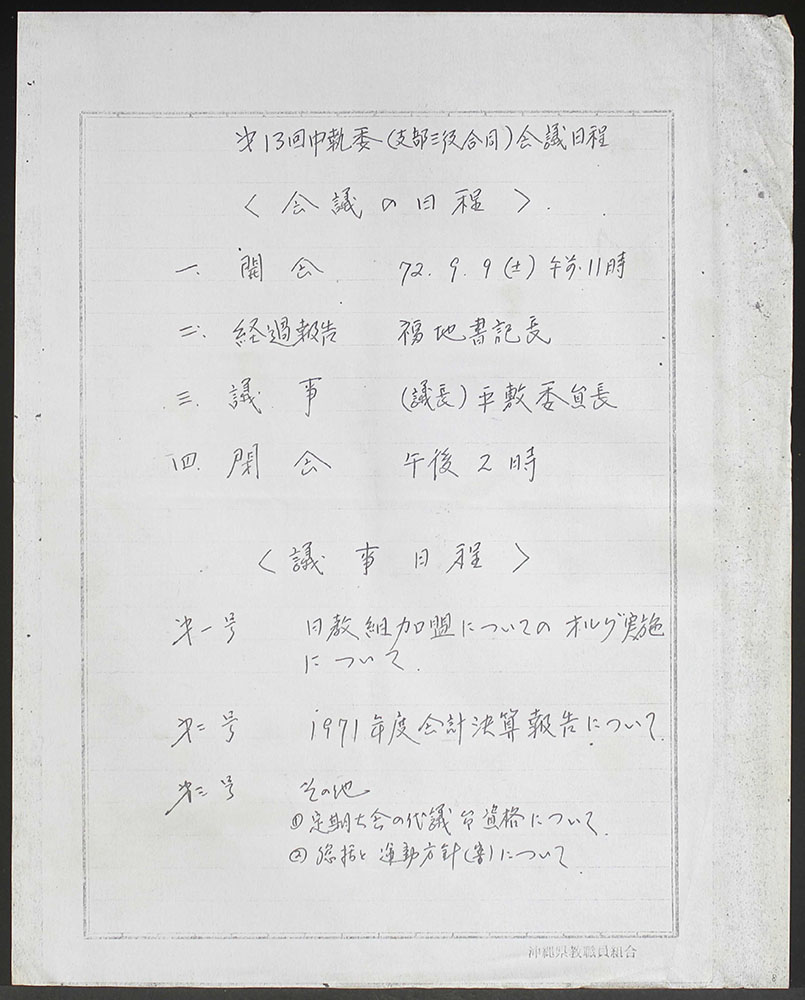 第13回中執委(支部三役合同)会議日程
〈会議の日程〉.
一. 開会 72. 9. 9(土)午前.11時
二. 経過報告 福地書記長
三. 議事 (議長)平敷委員長
四. 閉会 午後2時
〈議事日程〉
第一号 日教組加盟についてのオルグ実施
について.
第二号 1971年度会計決算報告について.
第三号 その他
①定期大会の代議員資格について.
②総括と運動方針(案)について.
沖縄県教職員組合